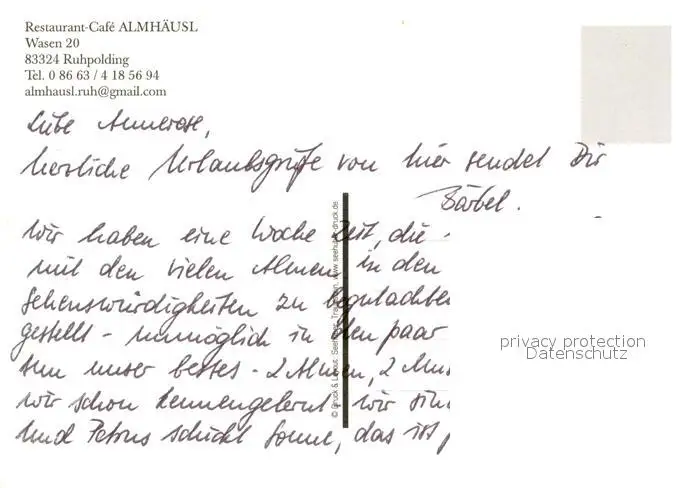 Restaurant-Café ALMHÄUSL
Wasen 20
83324 Ruhpolding
Tel. 0 86 63 / 4 18 56 94
almhausl.ruh@gmail.com
Liebe Annerose,
herzliche Urlaubsgrüße von hier sendet Dir
Bärbel.
Wir haben eine Woche Zeit, die
mit den vielen Almen in den
Sehenswürdigkeiten zu begutachten
gestellt - unmöglich in den paar
tun unser bestes - 2 Almen, 2
wir schon kennengelernt wir sin
Und Petrus schickt Sonne, das ist
© Druck & Layout: Traunstein, www.seehuber-druck.de
privacy protection
Datenschutz